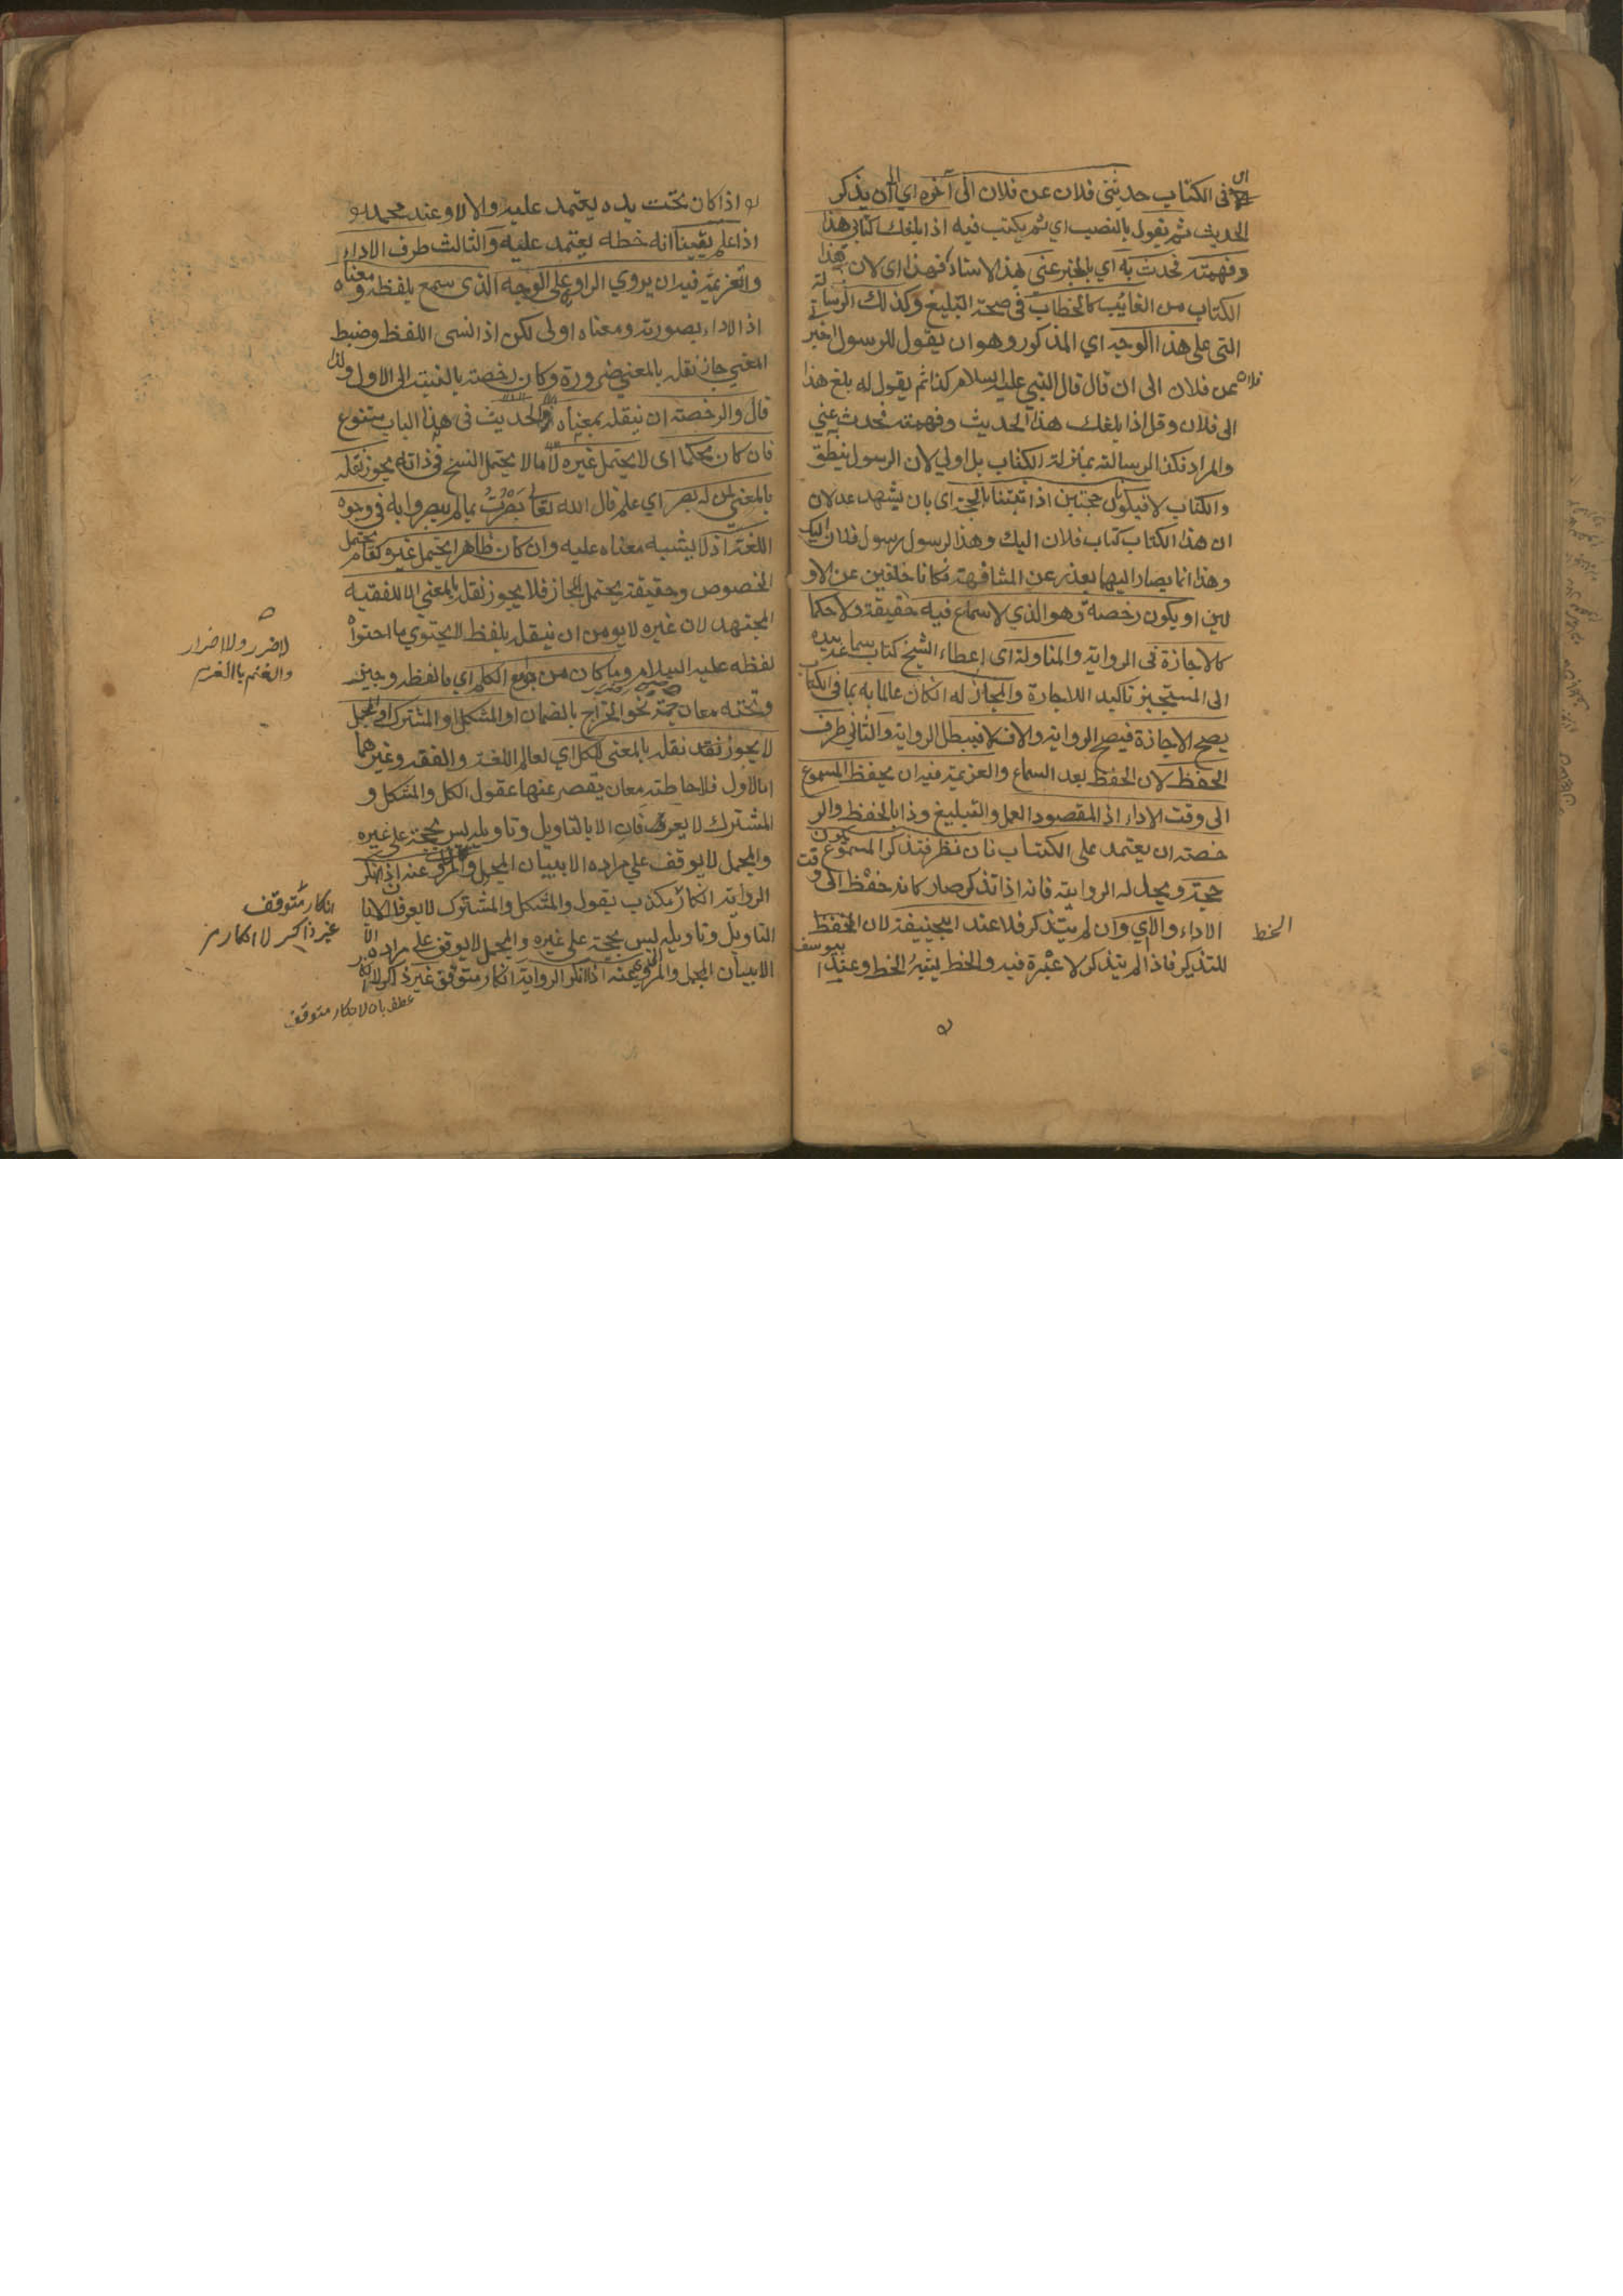 في الكتاب حدثني فلان عن فلان الى آخره اي الى ان يذكر
الحديث ثم يقول بالنصب اي ثم يكتب فيه اذا بلغك كتابي هذا
وفهمته فحدث به اي بالخبر عني بهذا الاسناد فهذا اي لان هذا
الكتاب من الغايب كالخطاب في صحة التبليغ وكذلك الرسالة
التي على هذا الوجه اي المذكور وهو ان يقول للرسول اخبر
فلانا عن فلان الى ان قال قال النبي عليه السلام كذا ثم يقول له بلغ هذا
الى فلان وقل اذا بلغك هذا الحديث وفهمته فحدث به عني
والمراد فكذا الرسالة بمنزلة الكتاب بل اولي لان الرسول ينطق
والكتاب لا فيكونان حجتين اذا ثبتتا بالحجة اى بان يشهد عدلان
ان هذا الكتاب كتاب فلان اليك وهذا الرسول رسول فلان اليك
وهذا انما يصار اليهما بعذر عن المشافهة فكانا خلفين عن الاو
لين او يكون رخصة وهو الذي لا سماع فيه حقيقة ولا حكما
كالاجازة في الرواية والمناولة اى اعطاء الشيخ كتاب سماعه بيده
الى المستجيز تاكيد اللاجازة والمجاز له ان كان عالما به بما في الكتاب
يصح الاجازة فيصح الرواية والا فلا فيبطل الرواية والثاني طرف
الحفظ لان الحفظ بعد السماع والعزيمة فيه ان يحفظ المسموع
الى وقت الاداء اذ المقصود العمل والتبليغ وذا بالحفظ والر
خصة ان يعتمد على الكتاب فان نظر فتذكر المسموع يكون
حجة ويحل له الرواية فانه اذا تذكر صار كانه حفظ الى وقت
الاداء والاي وان لم يتذكر فلا عند ابيحنيفة لان الحفظ
الخط
للتذكر فاذا لم يتذكر لا عبرة فيه والخط يشبه الخط وعند ابيوسف
اذا كان تحت يده يعتمد عليه والا لا وعند محمد
اذا علم يقينا انه خطه يعتمد عليه والثالث طرف الاداء
والعزيمة فيه ان يروي الراو على الوجه الذي سمع بلفظه ومعناه
اذ الاداء بصورته ومعناه اولى لكن اذا نسى اللفظ وضبط
المعني جاز نقله بالمعني ضرورة وكان رخصة بالنسبة الى الاول ولذا
قال والرخصة ان ينقله بمعناه والحديث في هذا الباب يتنوع
فان كان محكما اى لا يحتمل غيره لا ما لا يحتمل النسخ في ذاته يجوز نقله
بالمعني لمن له بصر اي علم قال الله تعالى بصرت بما لم يبصروا به في وجوه
اللغة اذ لا يشبه معناه عليه وان كان ظاهرا يحتمل غيره كعام يحتمل
الخصوص وحقيقة يحتمل المجاز فلا يجوز نقله بالمعني الا للفقيه
المجتهد لان غيره لا يومن ان ينقله بلفظ لا يحتوي ما احتواه
لا ضرر ولا اضرار
والغنم بالغرم
لفظه عليه السلام وما كان من جوامع الكلم اي ما لفظه وجيز
وتحته معان جمة نحو الخراج بالضمان او المشكل او المشترك او المجمل
لا يجوز نقله بالمعنى للكل اي لعالم اللغة والفقه وغيرهما
اما الاول فلاحاطته معان يقصر عنها عقول الكل والمشكل و
المشترك لا يعرفان الا بالتاويل وتاويله ليس بحجة على غيره
والمجمل لا يوقف علي مراده الا ببيان المجمل والمروي عنه اذا انكر
الرواية انكار مكذب يقول والمشكل والمشترك لا يعرفان الا
انكار متوقف
غير ذاكر
التاويل وتاويله ليس بحجة على غيره والمجمل لا يوقف على مراده
الا ببيان المجمل والمروي عنه اذا انكر الرواية انكار متوقف غير ذاكر